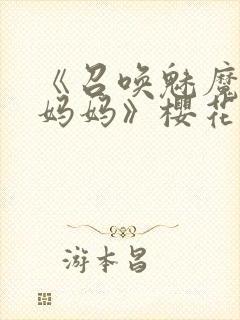 《召唤魅魔
妈妈》樱花
游本昌